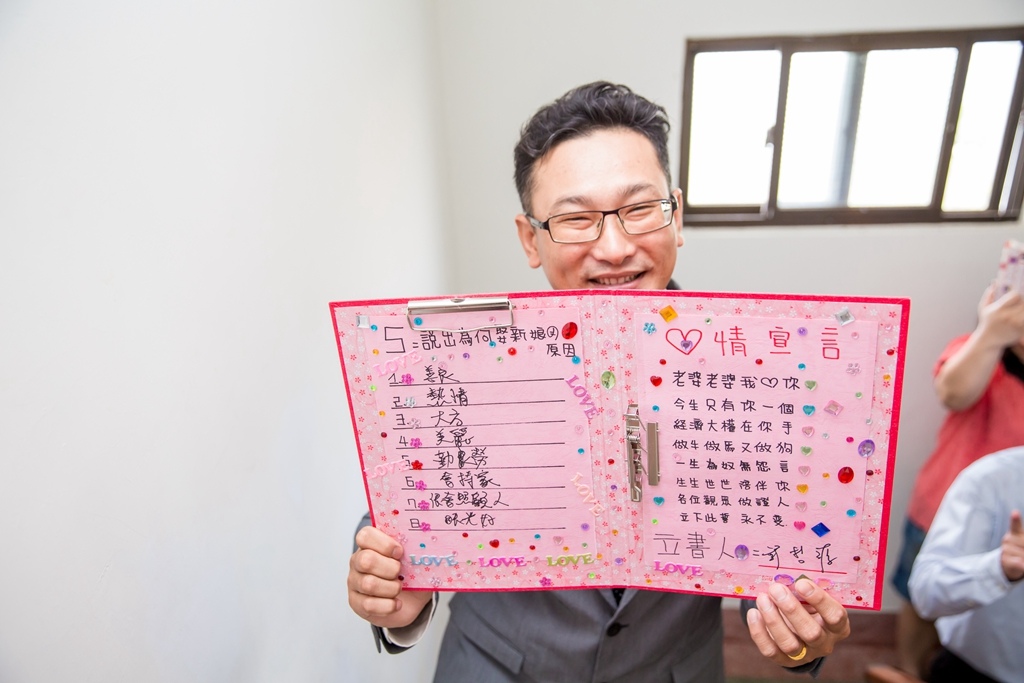 5=説出為何娶新娘的
原因
LOVE
1. 善良
2. 熱情
3. 大方
4. 美麗
5. 勤勞
6. 會持家
7. 很會照顧人
8. 眼光好
LOVE
LOVE
LOVE
LOVE LOVE LOVE
♡情宣言
老婆老婆我♡你
今生只有你一個
經濟大權在你手
做牛做馬又做狗
一生為奴無怨言
生生世世陪伴你
各位親眾做證人
立下此書永不變
立書人=
LOVE